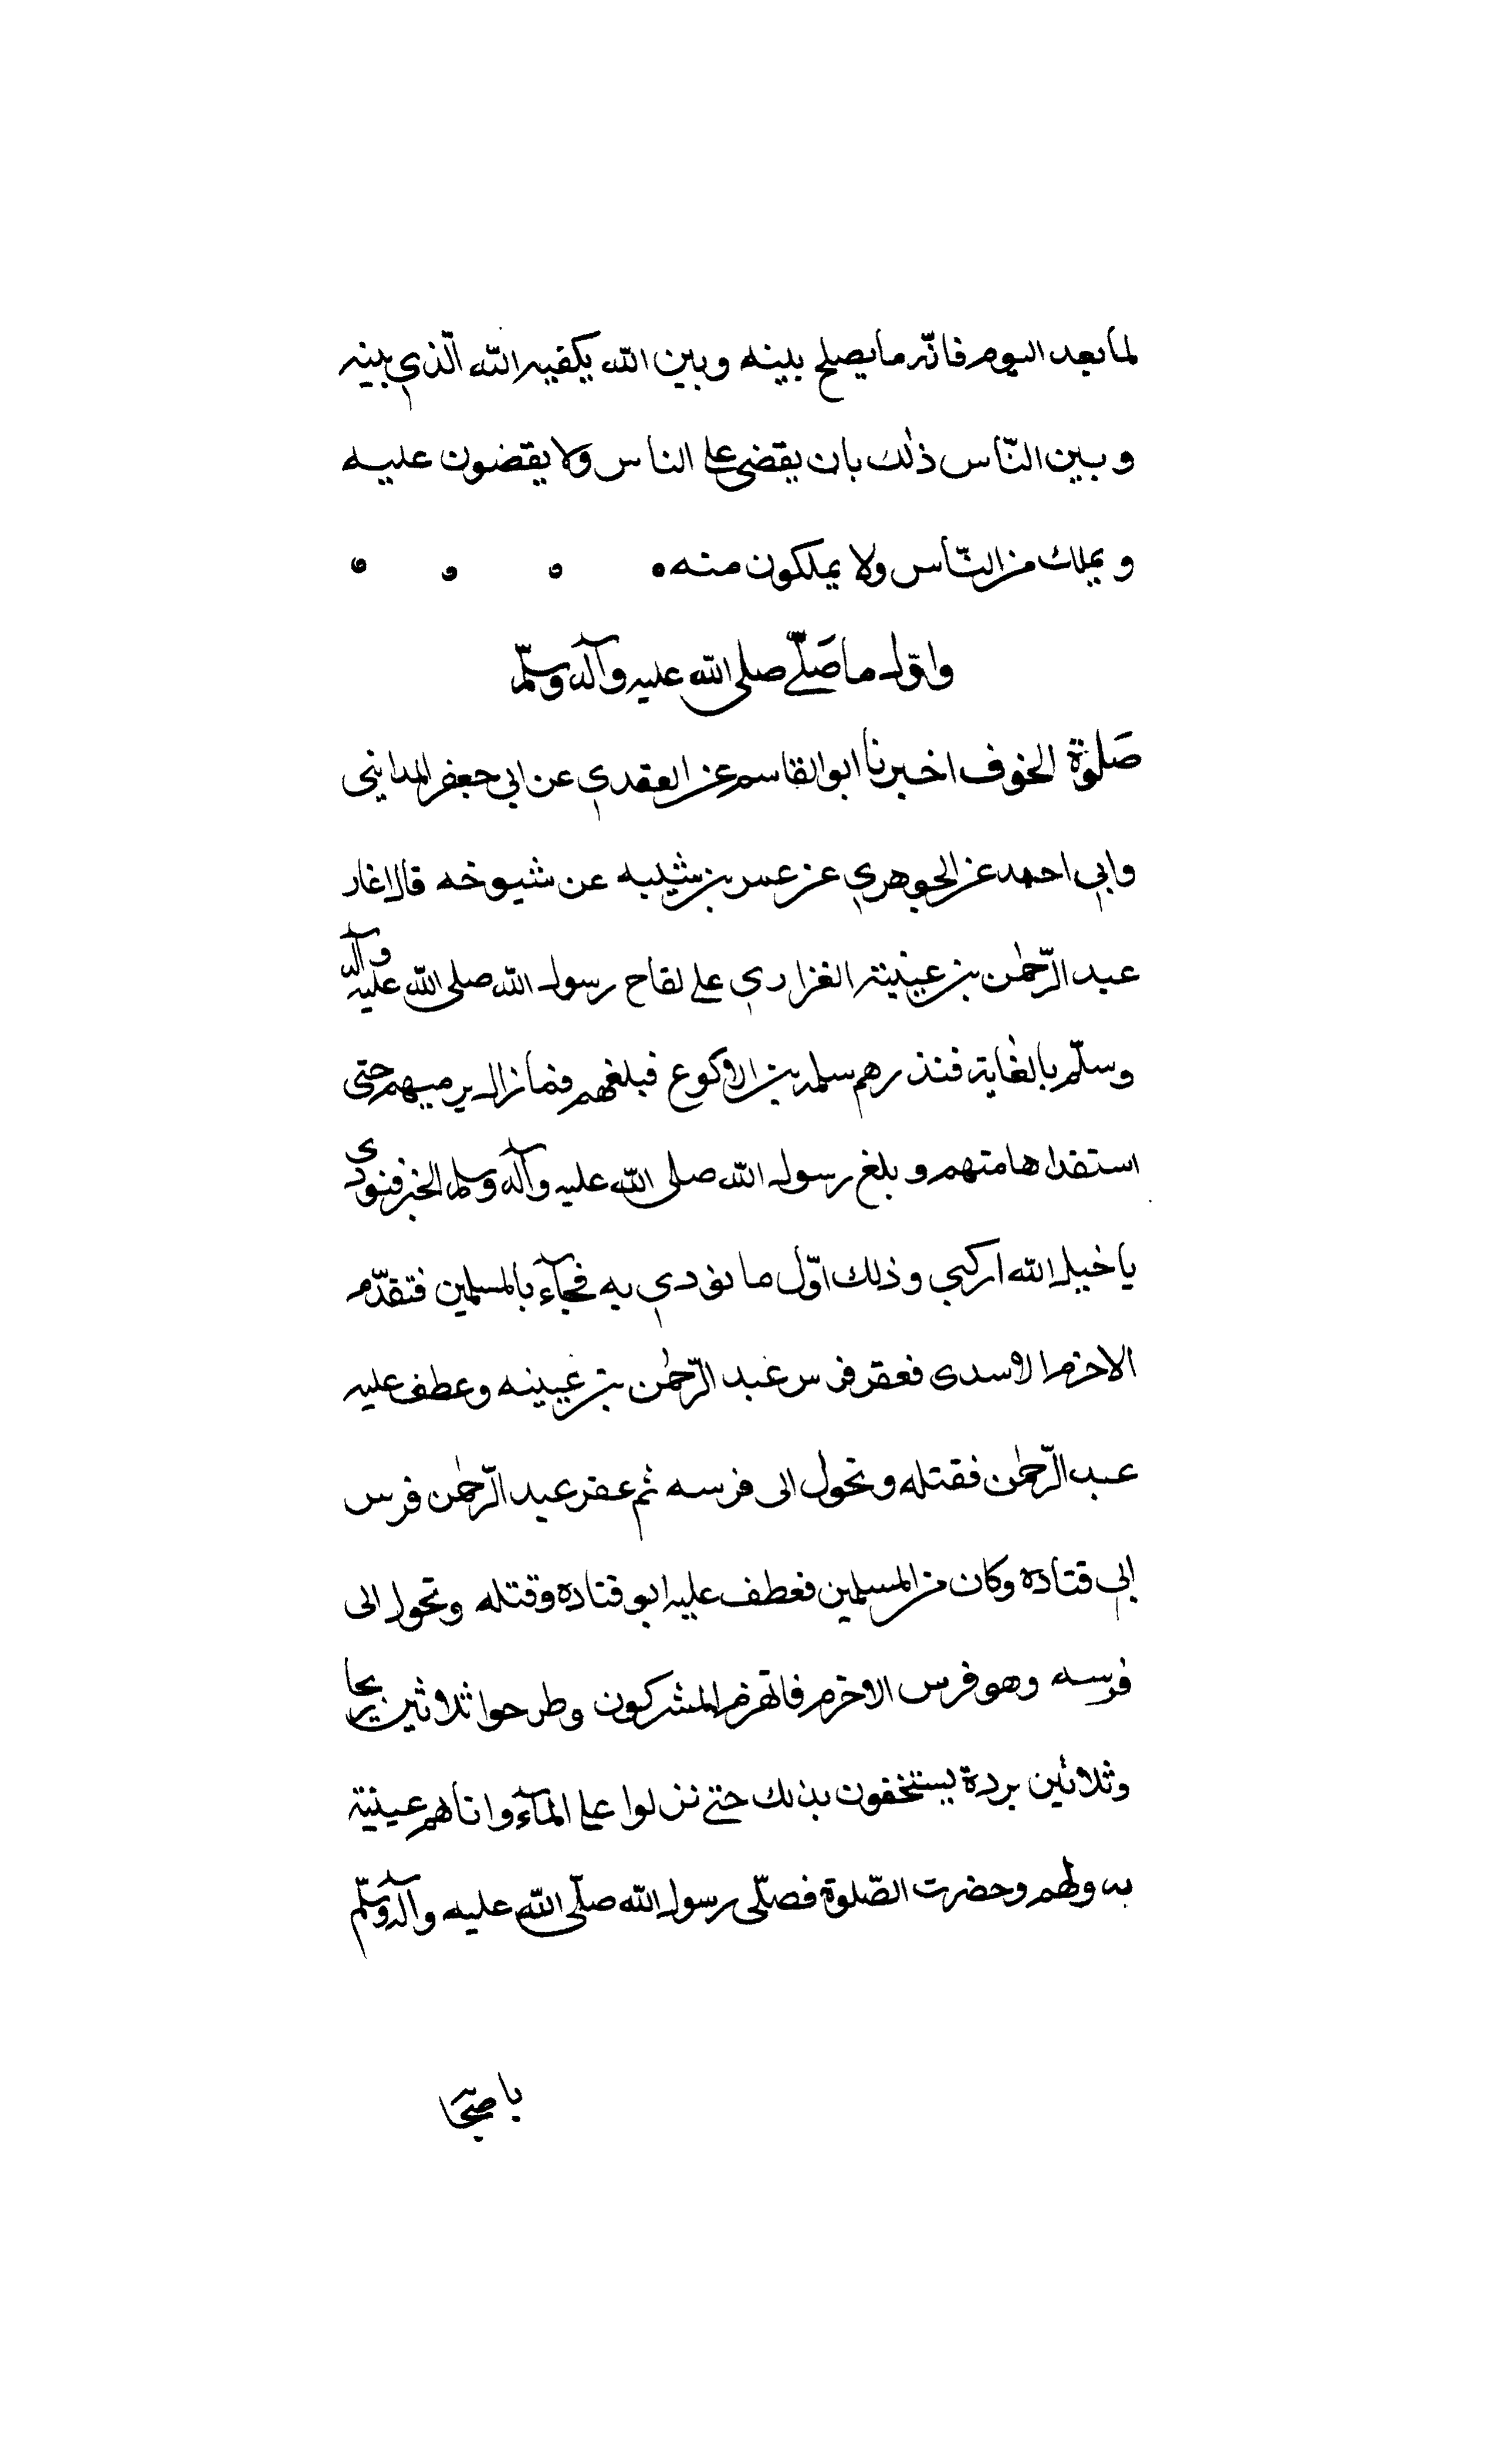 لما بعد اليوم فانّه ما يصلح بينه وبين الله يكفيه الله الّذي بينه
وبين النّاس ذلك بان يقضى على الناس ولا يقضون عليه
ويملك من النّاس ولا يملكون منه ه ه ه ه
واوّل ما صَلّے صلى الله عليه وآله وسلّم
صَلٰوة الخوف اخبرنا ابو القاسم عن العقدي عن ابي جعفر المدايني
وابي احمد عن الجوهري عن عمر بن شيبه عن شيوخه قال اغار
عبد الرّحمٰن بن عيينة الفزاري على لقاح رسول الله صلى الله عليه وآله
وسلّم بالغابة فنذرهم سلمه بن الاكوع فبلغهم فما زال يرميهم حتى
استقدا هامتهم وبلغ رسول الله صلى الله عليه وآله وسلم الخبر فنودى
يا خيل الله اركبي وذلك اوّل ما نودي به فجآء بالمسلمين فتقدّم
الاخرم الاسدى فعقر فرس عبد الرّحمٰن بن عيينه وعطف عليه
عبد الرّحمٰن فقتله وتحول الى فرسه ثم عقر عبد الرّحمٰن فرس
ابي قتاده وكان من المسلمين فعطف عليه ابو قتاده وقتله وتحول الى
فرسه وهو فرس الاخرم فانهزم المشركون وطرحوا ثلاثين
وثلاثين بردة يستخفون بذلك حتى نزلوا على المآء واتاهم عيينة
به ولهم وحضرت الصّلوة فصلّى رسول الله صلّى الله عليه وآله وسلّم
با صحَا